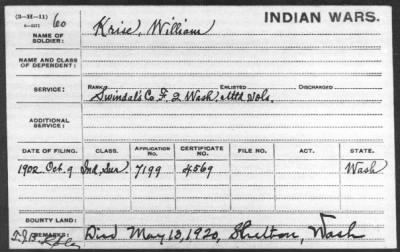 (3-H-11)
6-2571
60
INDIAN WARS.
NAME OF SOLDIER: Krise, William
NAME AND CLASS OF DEPENDENT:
SERVICE: RANK ENLISTED DISCHARGED
Swindal's Co. F. 2 Wash. Mtd Vols.
ADDITIONAL SERVICE:
DATE OF FILING. CLASS. APPLICATION NO. CERTIFICATE NO. FILE NO. ACT. STATE.
1902 Oct. 9 Ind. Sur 7199 4569 Wash
BOUNTY LAND:
REMARKS: Died May 13, 1920, Shelton, Wash